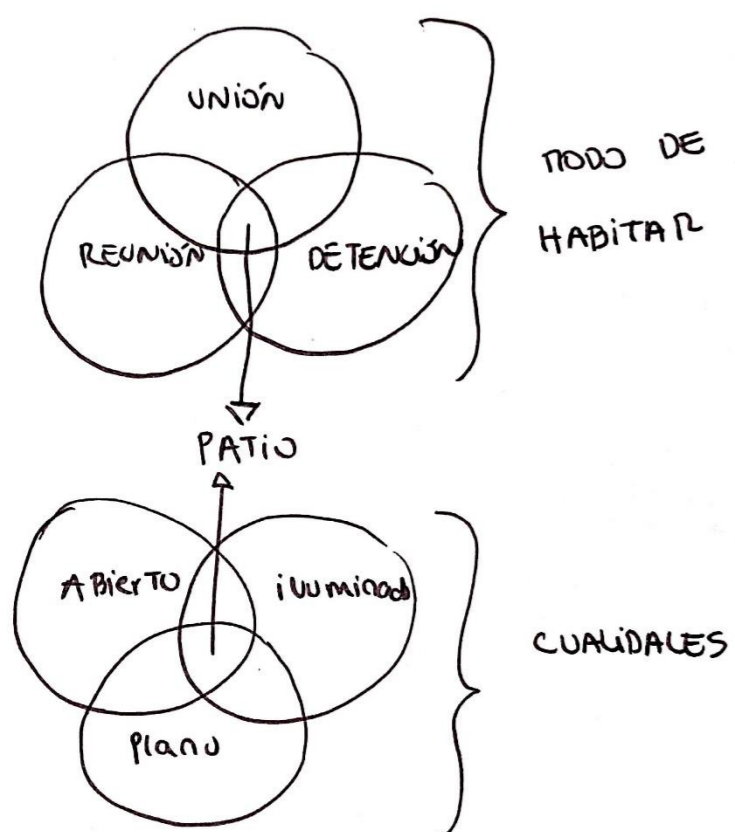 UNIÓN
REUNIÓN DETENCIÓN
MODO DE
HABITAR
PATIO
ABierTO iluminado
Plano
CUALIDADES